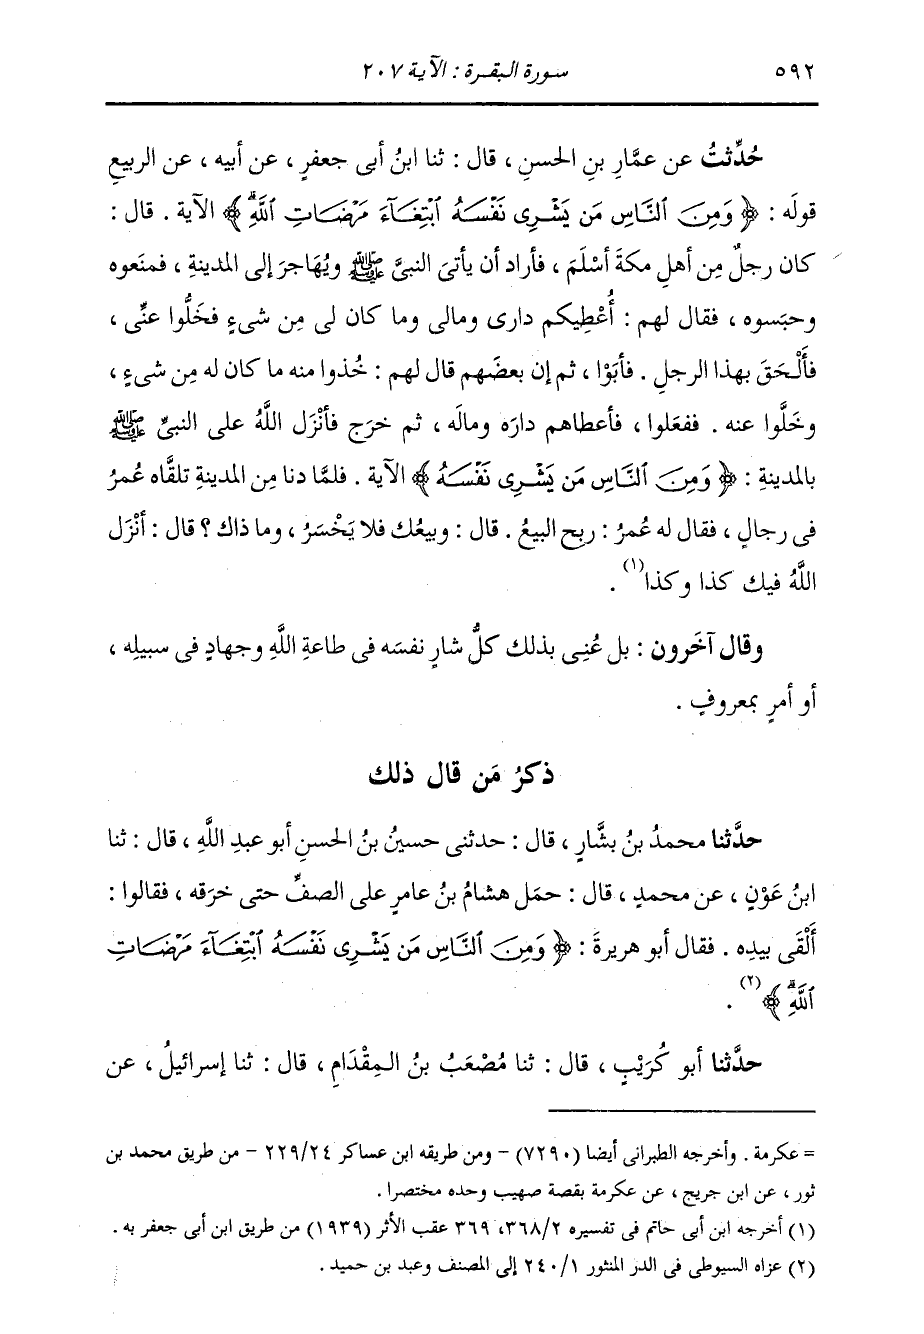 ٥٩٢ سورة البقرة : الآية ٢٠٧
حُدِّثتُ عن عمَّارِ بنِ الحسنِ ، قال : ثنا ابنُ أبى جعفرٍ ، عن أبيه ، عن الربيعِ
قولَه : ﴿ وَمِنَ ٱلنَّاسِ مَن يَشْرِى نَفْسَهُ ٱبْتِغَآءَ مَرْضَاتِ ٱللَّهِۗ ﴾ الآية . قال :
كان رجلٌ مِن أهلِ مكةَ أسْلَمَ ، فأراد أن يأتىَ النبىَّ ﷺ ويُهاجرَ إلى المدينةِ ، فمنَعوه
وحبَسوه ، فقال لهم : أُعْطِيكم دارى ومالى وما كان لى مِن شىءٍ فخَلُّوا عنِّى ،
فأَلْحَقَ بهذا الرجلِ . فأبَوْا ، ثم إن بعضَهم قال لهم : خُذوا منه ما كان له مِن شىءٍ ،
وخَلُّوا عنه . ففعَلوا ، فأعطاهم دارَه ومالَه ، ثم خرَج فأنْزَل اللَّهُ على النبىِّ ﷺ
بالمدينةِ : ﴿ وَمِنَ ٱلنَّاسِ مَن يَشْرِى نَفْسَهُ ﴾ الآية . فلمَّا دنا مِن المدينةِ تلقَّاه عُمرُ
فى رجالٍ ، فقال له عُمرُ : ربِح البيعُ . قال : وبيعُك فلا يَخْسَرُ ، وما ذاك ؟ قال : أنْزَل
اللَّهُ فيك كذا وكذا(١) .
وقال آخَرون : بل عُنِى بذلك كلُّ شارٍ نفسَه فى طاعةِ اللَّهِ وجهادٍ فى سبيلِه ،
أو أمرٍ بمعروفٍ .
ذكرُ مَن قال ذلك
حدَّثنا محمدُ بنُ بشَّارٍ ، قال : حدثنى حسينُ بنُ الحسنِ أبو عبدِ اللَّهِ ، قال : ثنا
ابنُ عَوْنٍ ، عن محمدٍ ، قال : حمَل هشامُ بنُ عامرٍ على الصفِّ حتى خرَقه ، فقالوا :
أَلْقَى بيدِه . فقال أبو هريرةَ : ﴿ وَمِنَ ٱلنَّاسِ مَن يَشْرِى نَفْسَهُ ٱبْتِغَآءَ مَرْضَاتِ
ٱللَّهِۗ ﴾(٢) .
حدَّثنا أبو كُرَيْبٍ ، قال : ثنا مُصْعَبُ بنُ المِقْدَامِ ، قال : ثنا إسرائيلُ ، عن
= عكرمة . وأخرجه الطبرانى أيضا (٧٢٩٠) – ومن طريقه ابن عساكر ٢٢٩/٢٤ – من طريق محمد بن
ثور ، عن ابن جريج ، عن عكرمة بقصة صهيب وحده مختصرا .
(١) أخرجه ابن أبى حاتم فى تفسيره ٣٦٨/٢، ٣٦٩ عقب الأثر (١٩٣٩) من طريق ابن أبى جعفر به .
(٢) عزاه السيوطى فى الدر المنثور ٢٤٠/١ إلى المصنف وعبد بن حميد .